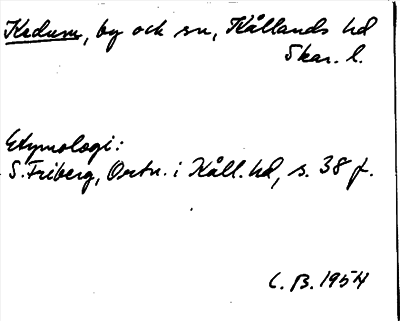 Kedum, by och sn, Kållands hd
Skar. l.
Etymologi:
S. Friberg, Ortn. i Kåll. hd, s. 38 f.
C. B. 1954